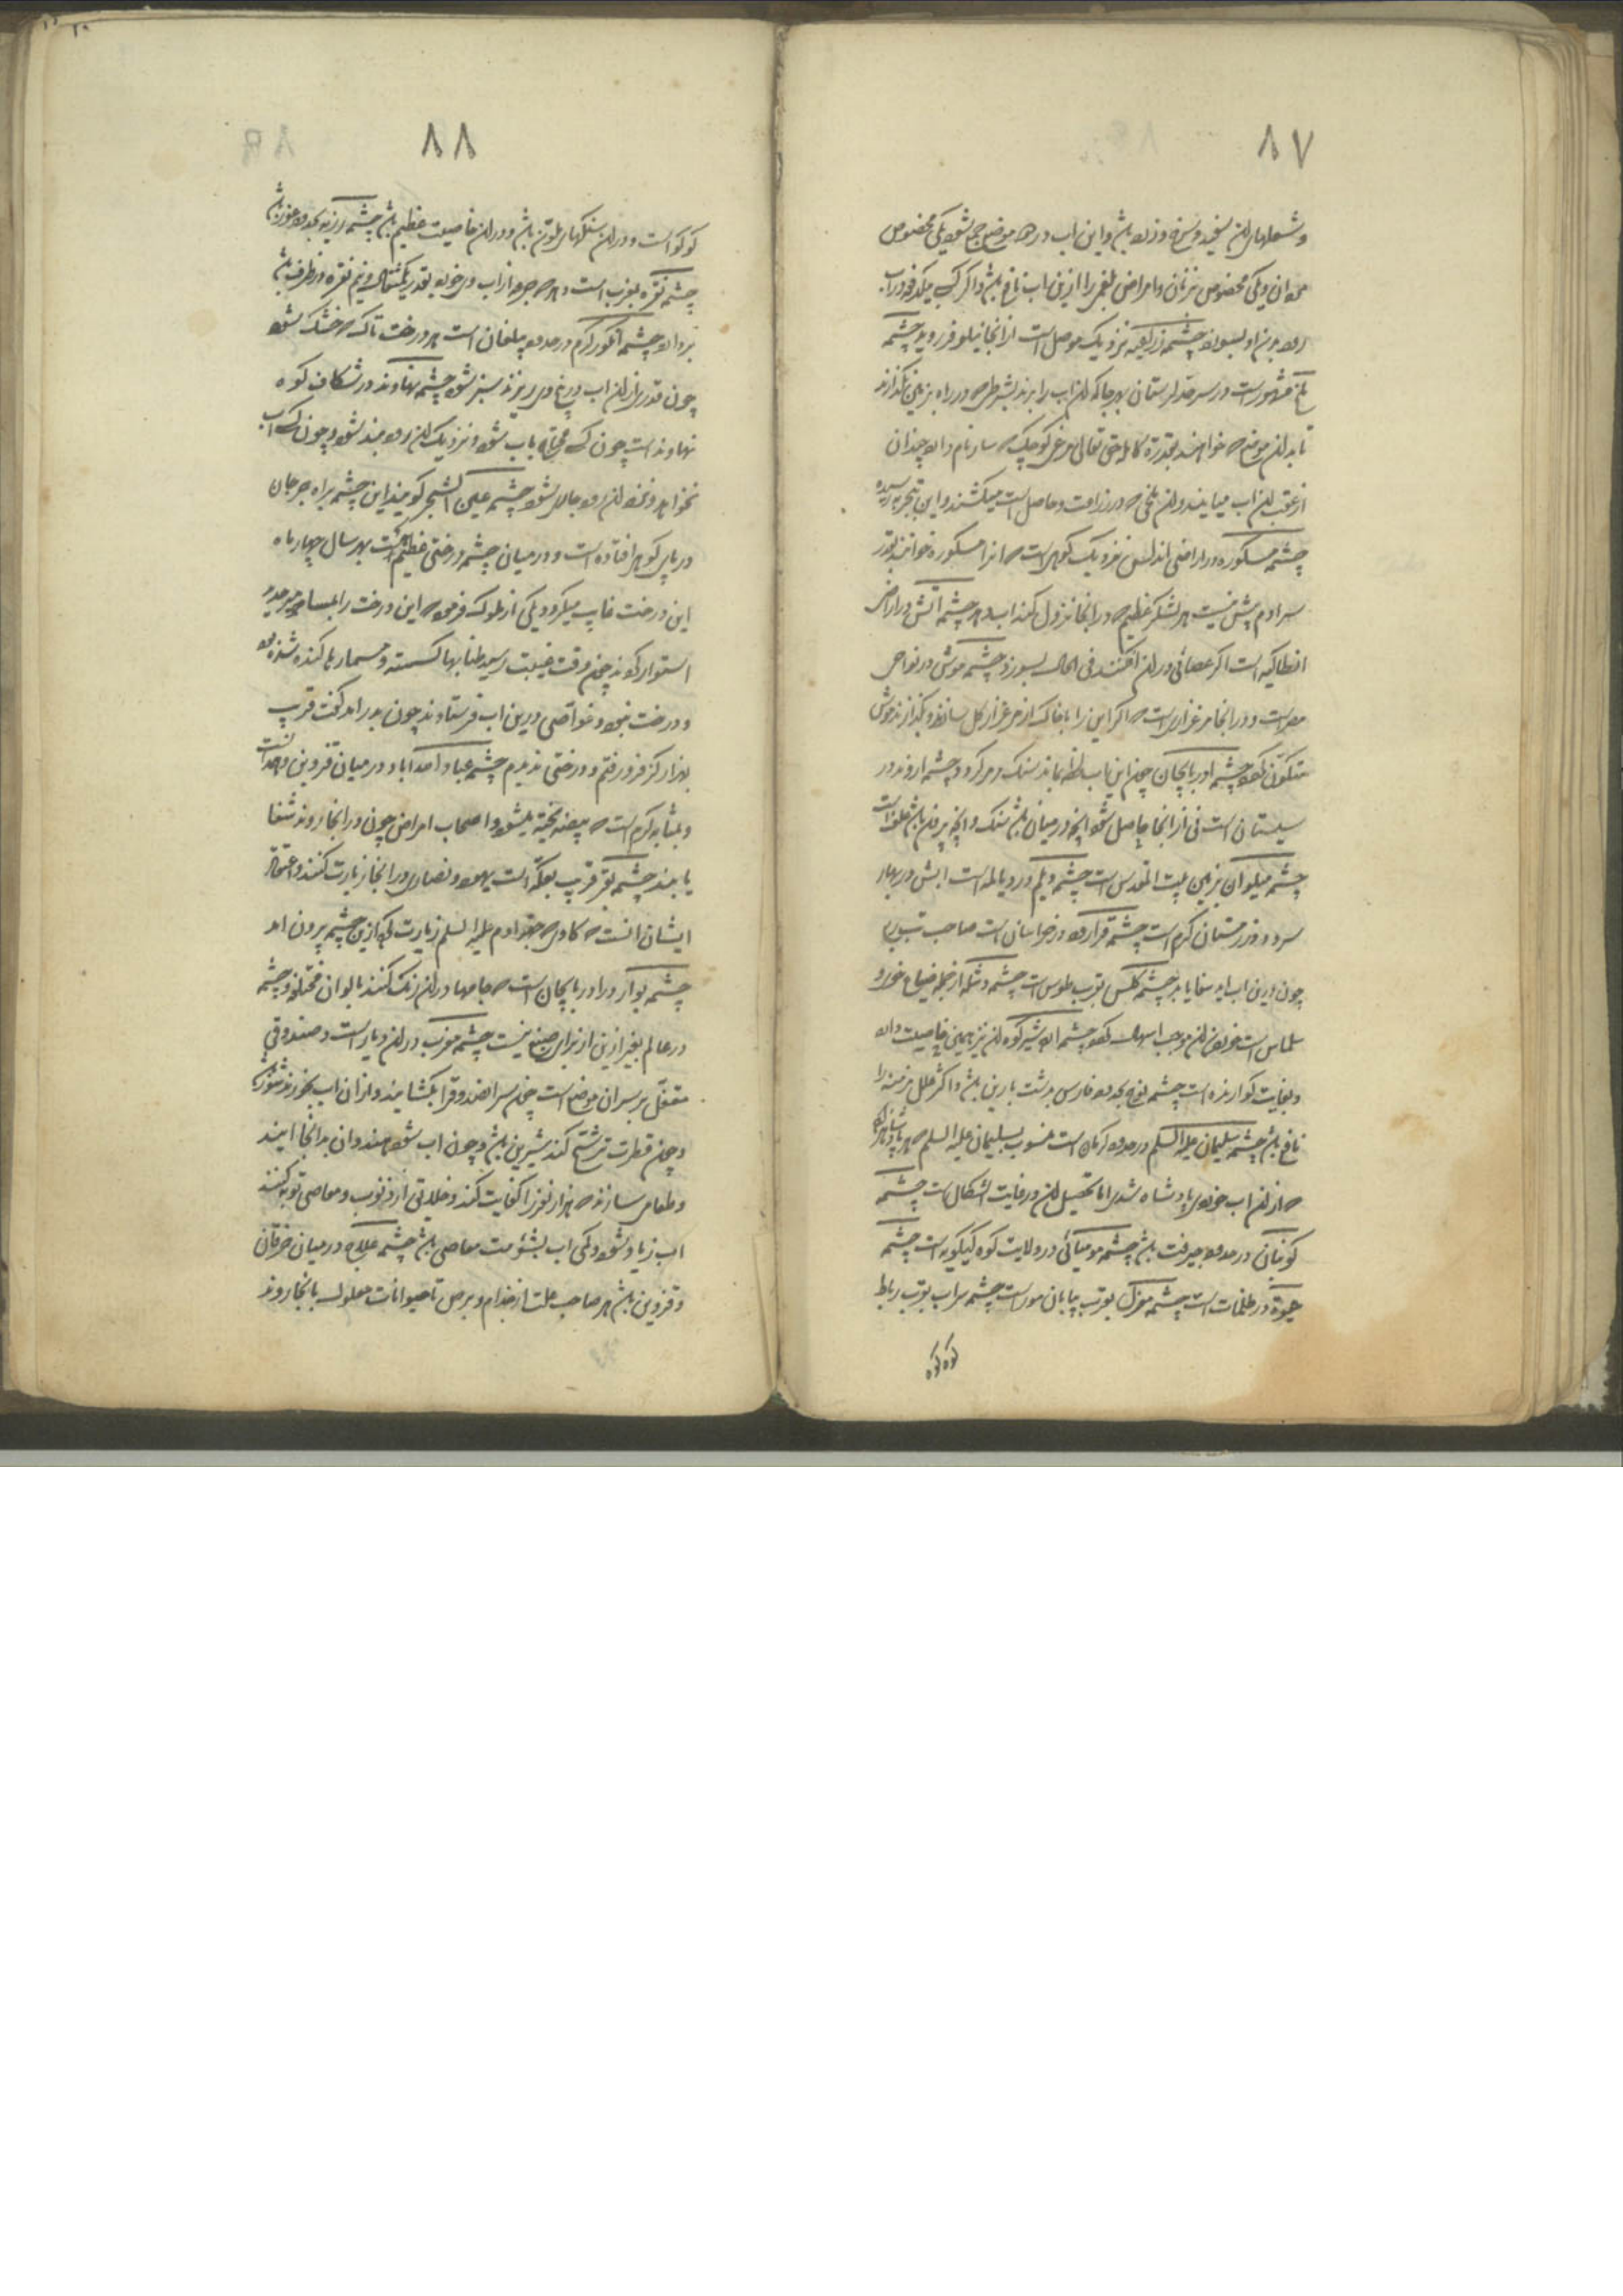 ٨٧
وشعلهای آن سفید و سرخ و زرد باشد و این آب در دو موضع جمع شود یکی مخصوص
مردان و یکی مخصوص بزنان و امراض بلغمی را ازین آب نافع باشد و اگر کسی
نزدیک موصل است از آنجا نیلوفر روید چشمه
مشهور است در سرحد لرستان بهر جا که آن آب را برند بشرط که در راه بزمین نگذارند
تا بدان موضع که خواهند بقدرة کامله حق تعالی مرغی کوچک که سار نام دارد چندان
از عقب آن آب میایند و آن ملخی که در زراعت و حاصل است میکشند و این بتجربه رسیده
چشمه مسکوره در اراضی اندلس نزدیک کوهی است که آنرا مسکوره خوانند بقدر
سر آدم بیش نیست هر لشکر عظیم که در آنجا نزول کند آب دهد چشمه آتش در اراضی
انطاکیه است اگر عصائی در آن افکنند فی الحال بسوزد چشمه موش در نواحی
مصر است و در آنجا مرغزاری است که اگر این را با خاک از مرغزار گل سازند و بگذارند موش
متکون شود چشمه آذربایجان چون این آب لحظه بماند سنگ مرمر گردد چشمه اروند در
سیستان است نی از آنجا حاصل شود آنچه در میان باشد سنگ و آنچه بیرون باشد علف است
چشمه میلوان بزمین بیت المقدس است چشمه دیلم در دیالمه است آبش در بهار
سرد و در زمستان گرم است چشمه قراررود در خراسان است صاحب تب
چون درین آب آید شفا یابد چشمه کلس بقرب طوس است چشمه از جمله ضیاع خوی و
سلماس است خوردن آن موجب اسهال شود چشمه ابو شیرکوه آن نیز همین خاصیت دارد
و بغایت گوارنده است چشمه بحدود فارس بدشت بارین باشد و اکثر علل مزمنه را
نافع باشد چشمه سلیمان علیه السلم در حدود کرمان است منسوب بسلیمان علیه السلم
که از آن آب خوردی پادشاه شدی اما تحصیل آن در غایت اشکال است چشمه
در حدود جیرفت باشد چشمه مومیائی در ولایت کوه کیلویه است چشمه
حیوة در ظلمات است چشمه بقرب بیابان مور است چشمه سراب بقرب رباط
کوکو
٨٨
کوکو است و در آن سنگهای ملون باشد و در آن خاصیت عظیم باشد چشمه بحدود
چشمه نقره بغرب است و هر که جرعه از آب وی خورد بقدر یکمثقال و نیم نقره در ظرف باشد
چشمه انگور گرم در حدود بیلقان است هر درخت تاک که خشک شود
چون قدری از آن آب در بیخ وی ریزند سبز شود چشمه نهاوند در شکاف کوه
نهاوند است چون کسی محتاج بآب شود و نزدیک آن رود بلند شود و چون کسی آب
نخواهد و نزد آن رود جاری شود چشمه عین الشجر گویند این چشمه براه جرجان
در پای کوهی افتاده است و در میان چشمه درختی عظیم است بهر سال چهار ماه
این درخت غایب میگردد یکی از ملوک فرمود که این درخت را بمسامیر حدید
استوار کردند چون وقت غیبت رسید طنابها گسسته و مسمارها کنده شده بود
و درخت نبود و غواصی درین آب فرستادند چون بدر آمد گفت قریب
بهزار گز فرو رفتم و درختی ندیدم چشمه عبادآمدآباد در میان قزوین و همدانست
و بمثابه گرم است که بیضه پخته میشود و اصحاب امراض چون در آنجا روند شفا
یابند چشمه بقر قریب بعکه است یهود و نصاری در آنجا زیارت کنند و اعتقاد
ایشان آنست که گاوی که جهت آدم علیه السلم زیارت کرد ازین چشمه بیرون آمد
چشمه در آذربایجان است که جامها در آن رنگ کنند بالوان مختلفه و چشمه
در عالم بغیر ازین از برای صبغ نیست چشمه مغرب در آن دیار است و صندوقی
مقفل بر سر آن موضع است چون سر آن صندوق را بگشایند و از آن آب بخورند شور باشد
و چون قطرات ترشح کند شیرین باشد و چون آب شود هندوان بدانجا آیند
و طعامی سازند که هزار نفر را کفایت کند و خلایق از ذنوب و معاصی توبه کنند
آب زیاد شود و کمی آب بشؤمت معاصی باشد چشمه علاج در میان خرقان
و قزوین باشد هر صاحب علت از جذام و برص تا حیوانات معلول بآنجا روند